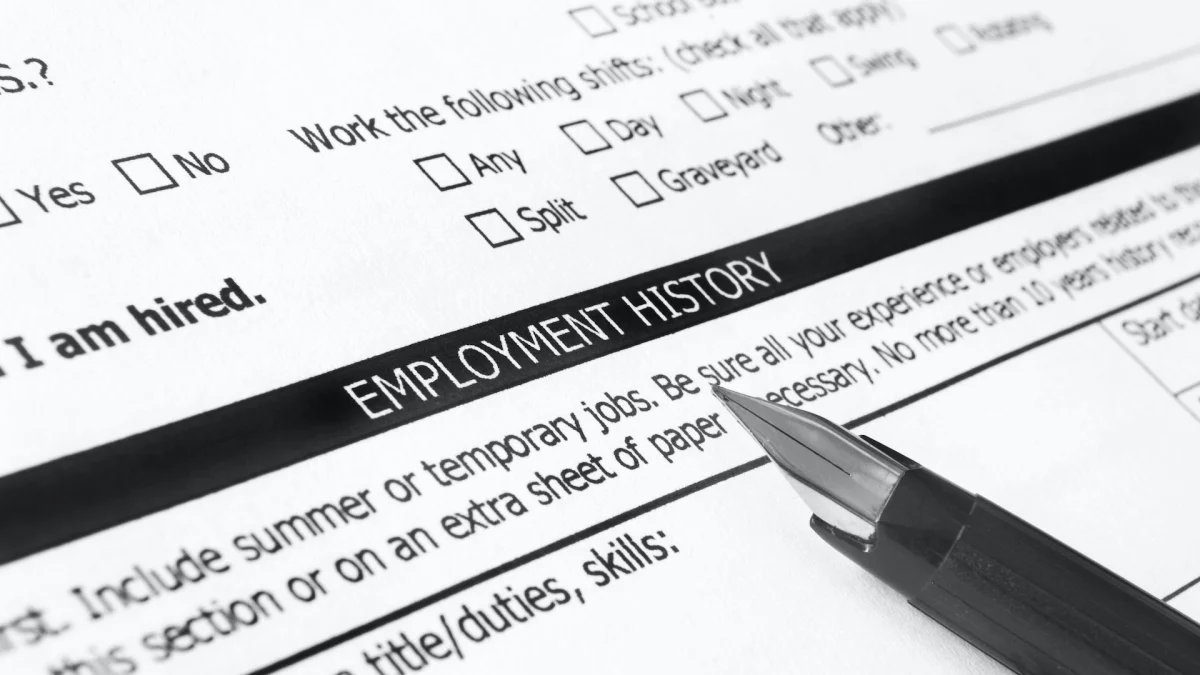 School
S.?
Work the following shifts: (check all that apply)
Yes No
Any Day Night Swing Rotating
Split Graveyard Other:
I am hired.
EMPLOYMENT HISTORY
Include summer or temporary jobs. Be sure all your experience or employers related to
this section or on an extra sheet of paper necessary. No more than 10 years history
Start
title/duties, skills: